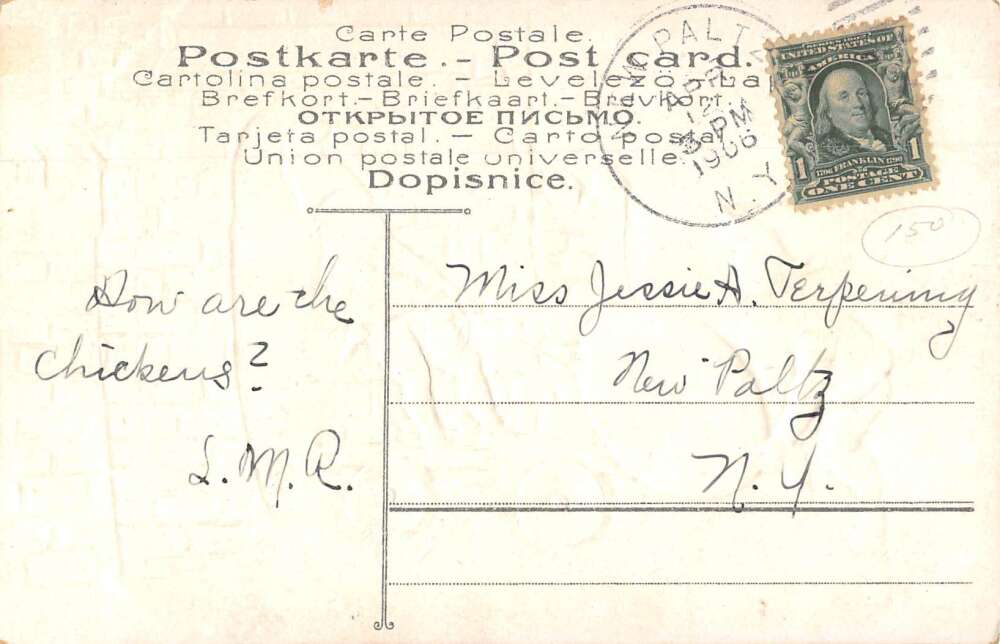 Carte Postale.
Postkarte. - Post card.
Cartolina postale. - Levelező-Lap
Brefkort. - Briefkaart. - Brevkort.
ОТКРЫТОЕ ПИСЬМО.
Tarjeta postal. - Carto postal
Union postale universelle.
Dopisnice.
NEW PALTZ
APR
12
3 PM
1906
N.Y.
UNITED STATES OF
AMERICA
1 1
1706 FRANKLIN 1790
POSTAGE
ONE CENT
150
How are the
chickens?
L. M. R.
Miss Jessie A. Terpening
New Paltz
N. Y.